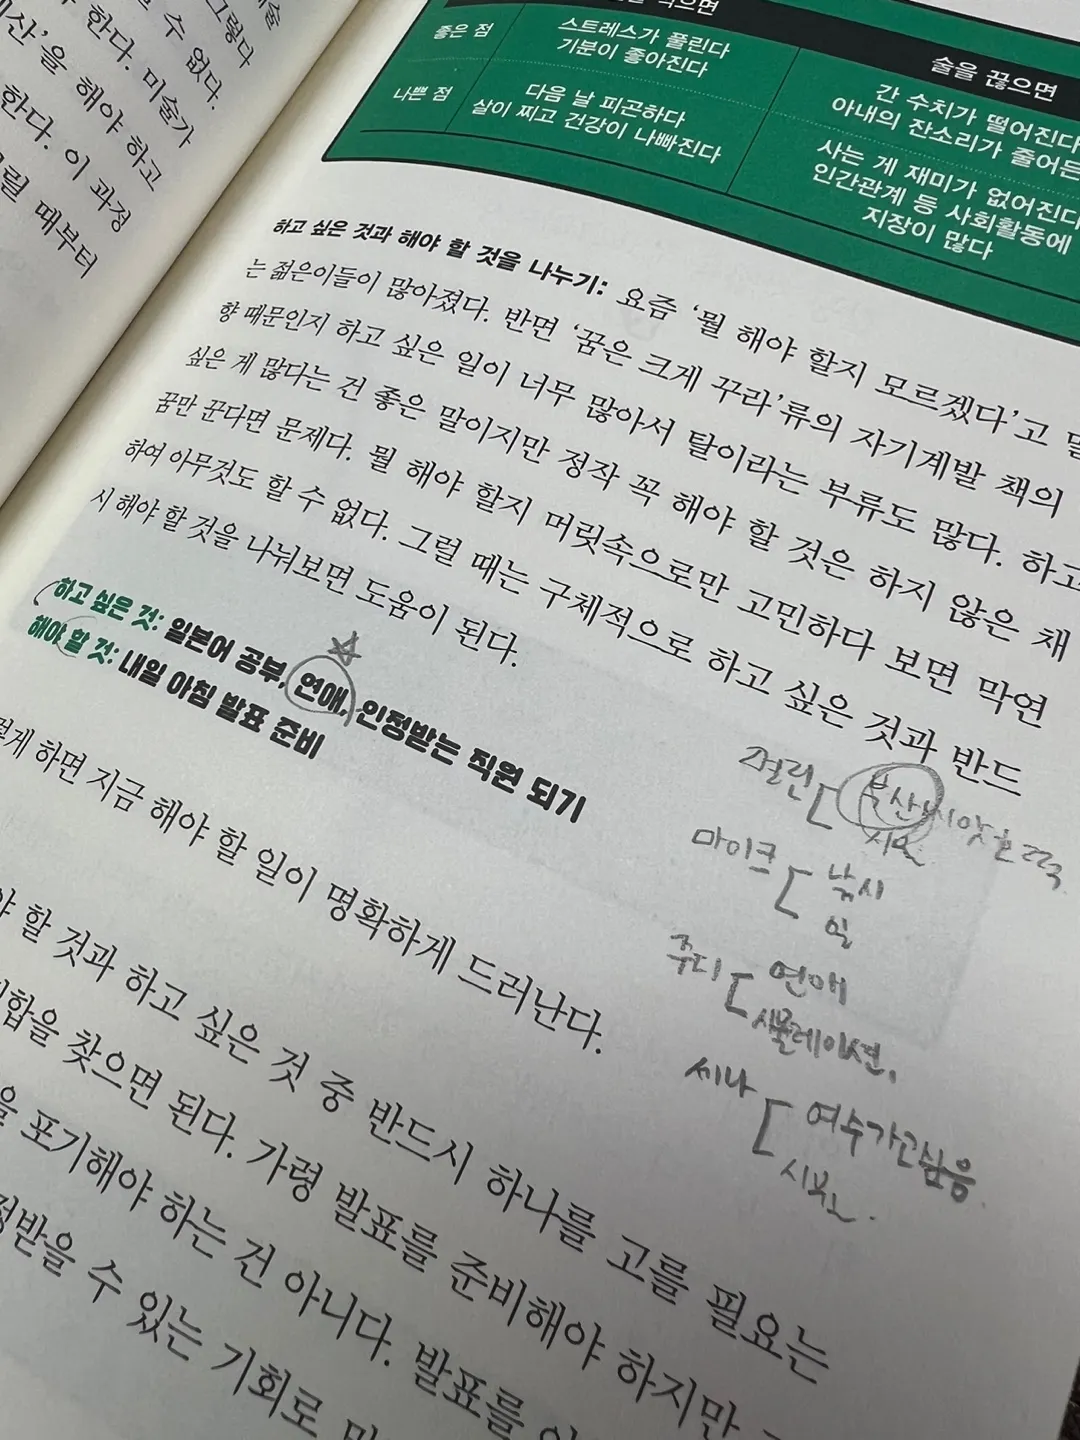 술
그렇다
수 없다.
한다. 미술가
산’을 해야 하고
한다. 이 과정
릴 때부터
먹으면
술을 끊으면
좋은 점
스트레스가 풀린다
기분이 좋아진다
간 수치가 떨어진다
아내의 잔소리가 줄어든
나쁜 점
다음 날 피곤하다
살이 찌고 건강이 나빠진다
사는 게 재미가 없어진다
인간관계 등 사회활동에
지장이 많다
하고 싶은 것과 해야 할 것을 나누기: 요즘 ‘뭘 해야 할지 모르겠다’고
는 젊은이들이 많아졌다. 반면 ‘꿈은 크게 꾸라’류의 자기계발 책의
향 때문인지 하고 싶은 일이 너무 많아서 탈이라는 부류도 많다. 하고
싶은 게 많다는 건 좋은 말이지만 정작 꼭 해야 할 것은 하지 않은 채
꿈만 꾼다면 문제다. 뭘 해야 할지 머릿속으로만 고민하다 보면 막연
하여 아무것도 할 수 없다. 그럴 때는 구체적으로 하고 싶은 것과 반드
시 해야 할 것을 나눠보면 도움이 된다.
하고 싶은 것: 일본어 공부, 연애, 인정받는 직원 되기
해야 할 것: 내일 아침 발표 준비
부산
마이크
낚시
일
쥬디
연애
시뮬레이션.
씨나
여수가고싶음.
렇게 하면 지금 해야 할 일이 명확하게 드러난다.
야 할 것과 하고 싶은 것 중 반드시 하나를 고를 필요는
합을 찾으면 된다. 가령 발표를 준비해야 하지만
을 포기해야 하는 건 아니다. 발표를
정받을 수 있는 기회로